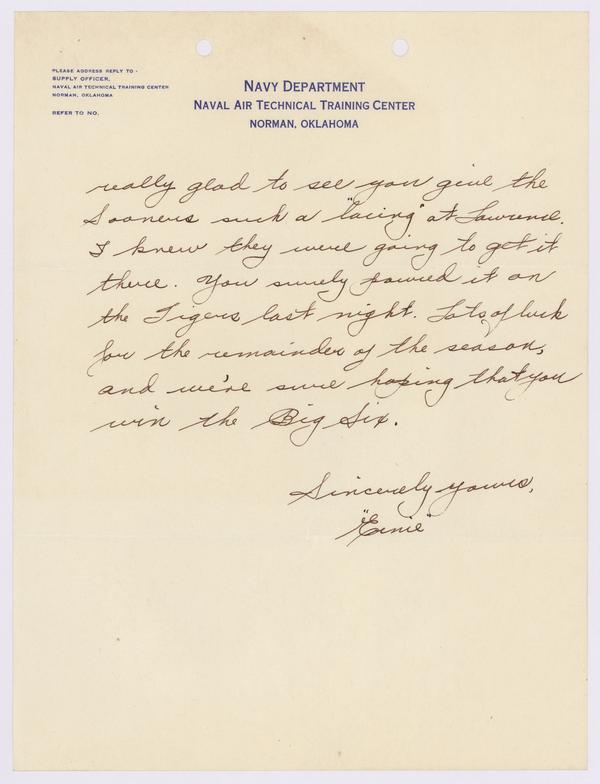 PLEASE ADDRESS REPLY TO -
SUPPLY OFFICER,
NAVAL AIR TECHNICAL TRAINING CENTER
NORMAN, OKLAHOMA
REFER TO NO.
NAVY DEPARTMENT
NAVAL AIR TECHNICAL TRAINING CENTER
NORMAN, OKLAHOMA
really glad to see you give the
Sooners such a "lacing" at Lawrence.
I knew they were going to get it
there. You surely poured it on
the Tigers last night. Lots of luck
for the remainder of the season,
and we're sure hoping that you
win the Big Six.
Sincerely yours,
"Ernie"